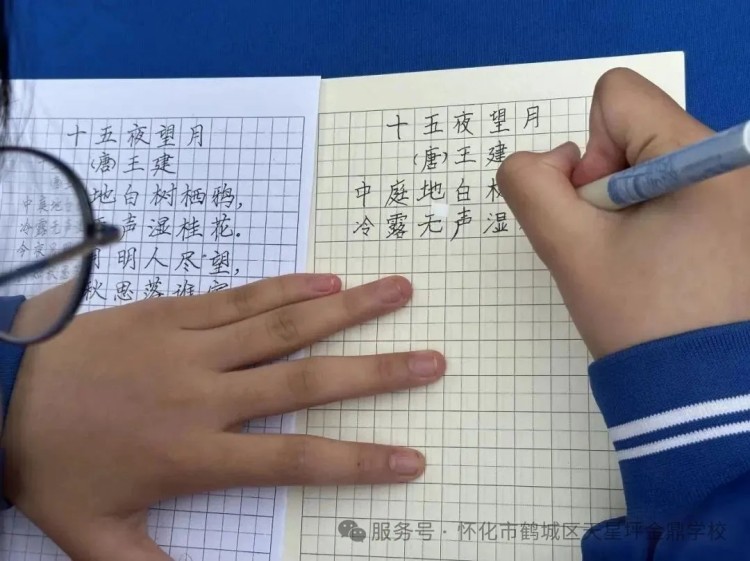 十五夜望月
(唐)王建
地白树栖鸦,
声湿桂花.
明人尽望,
秋思落谁家
十五夜望月
(唐)王建
中庭地白树
冷露无声湿
服务号 · 怀化市鹤城区天星坪金鼎学校